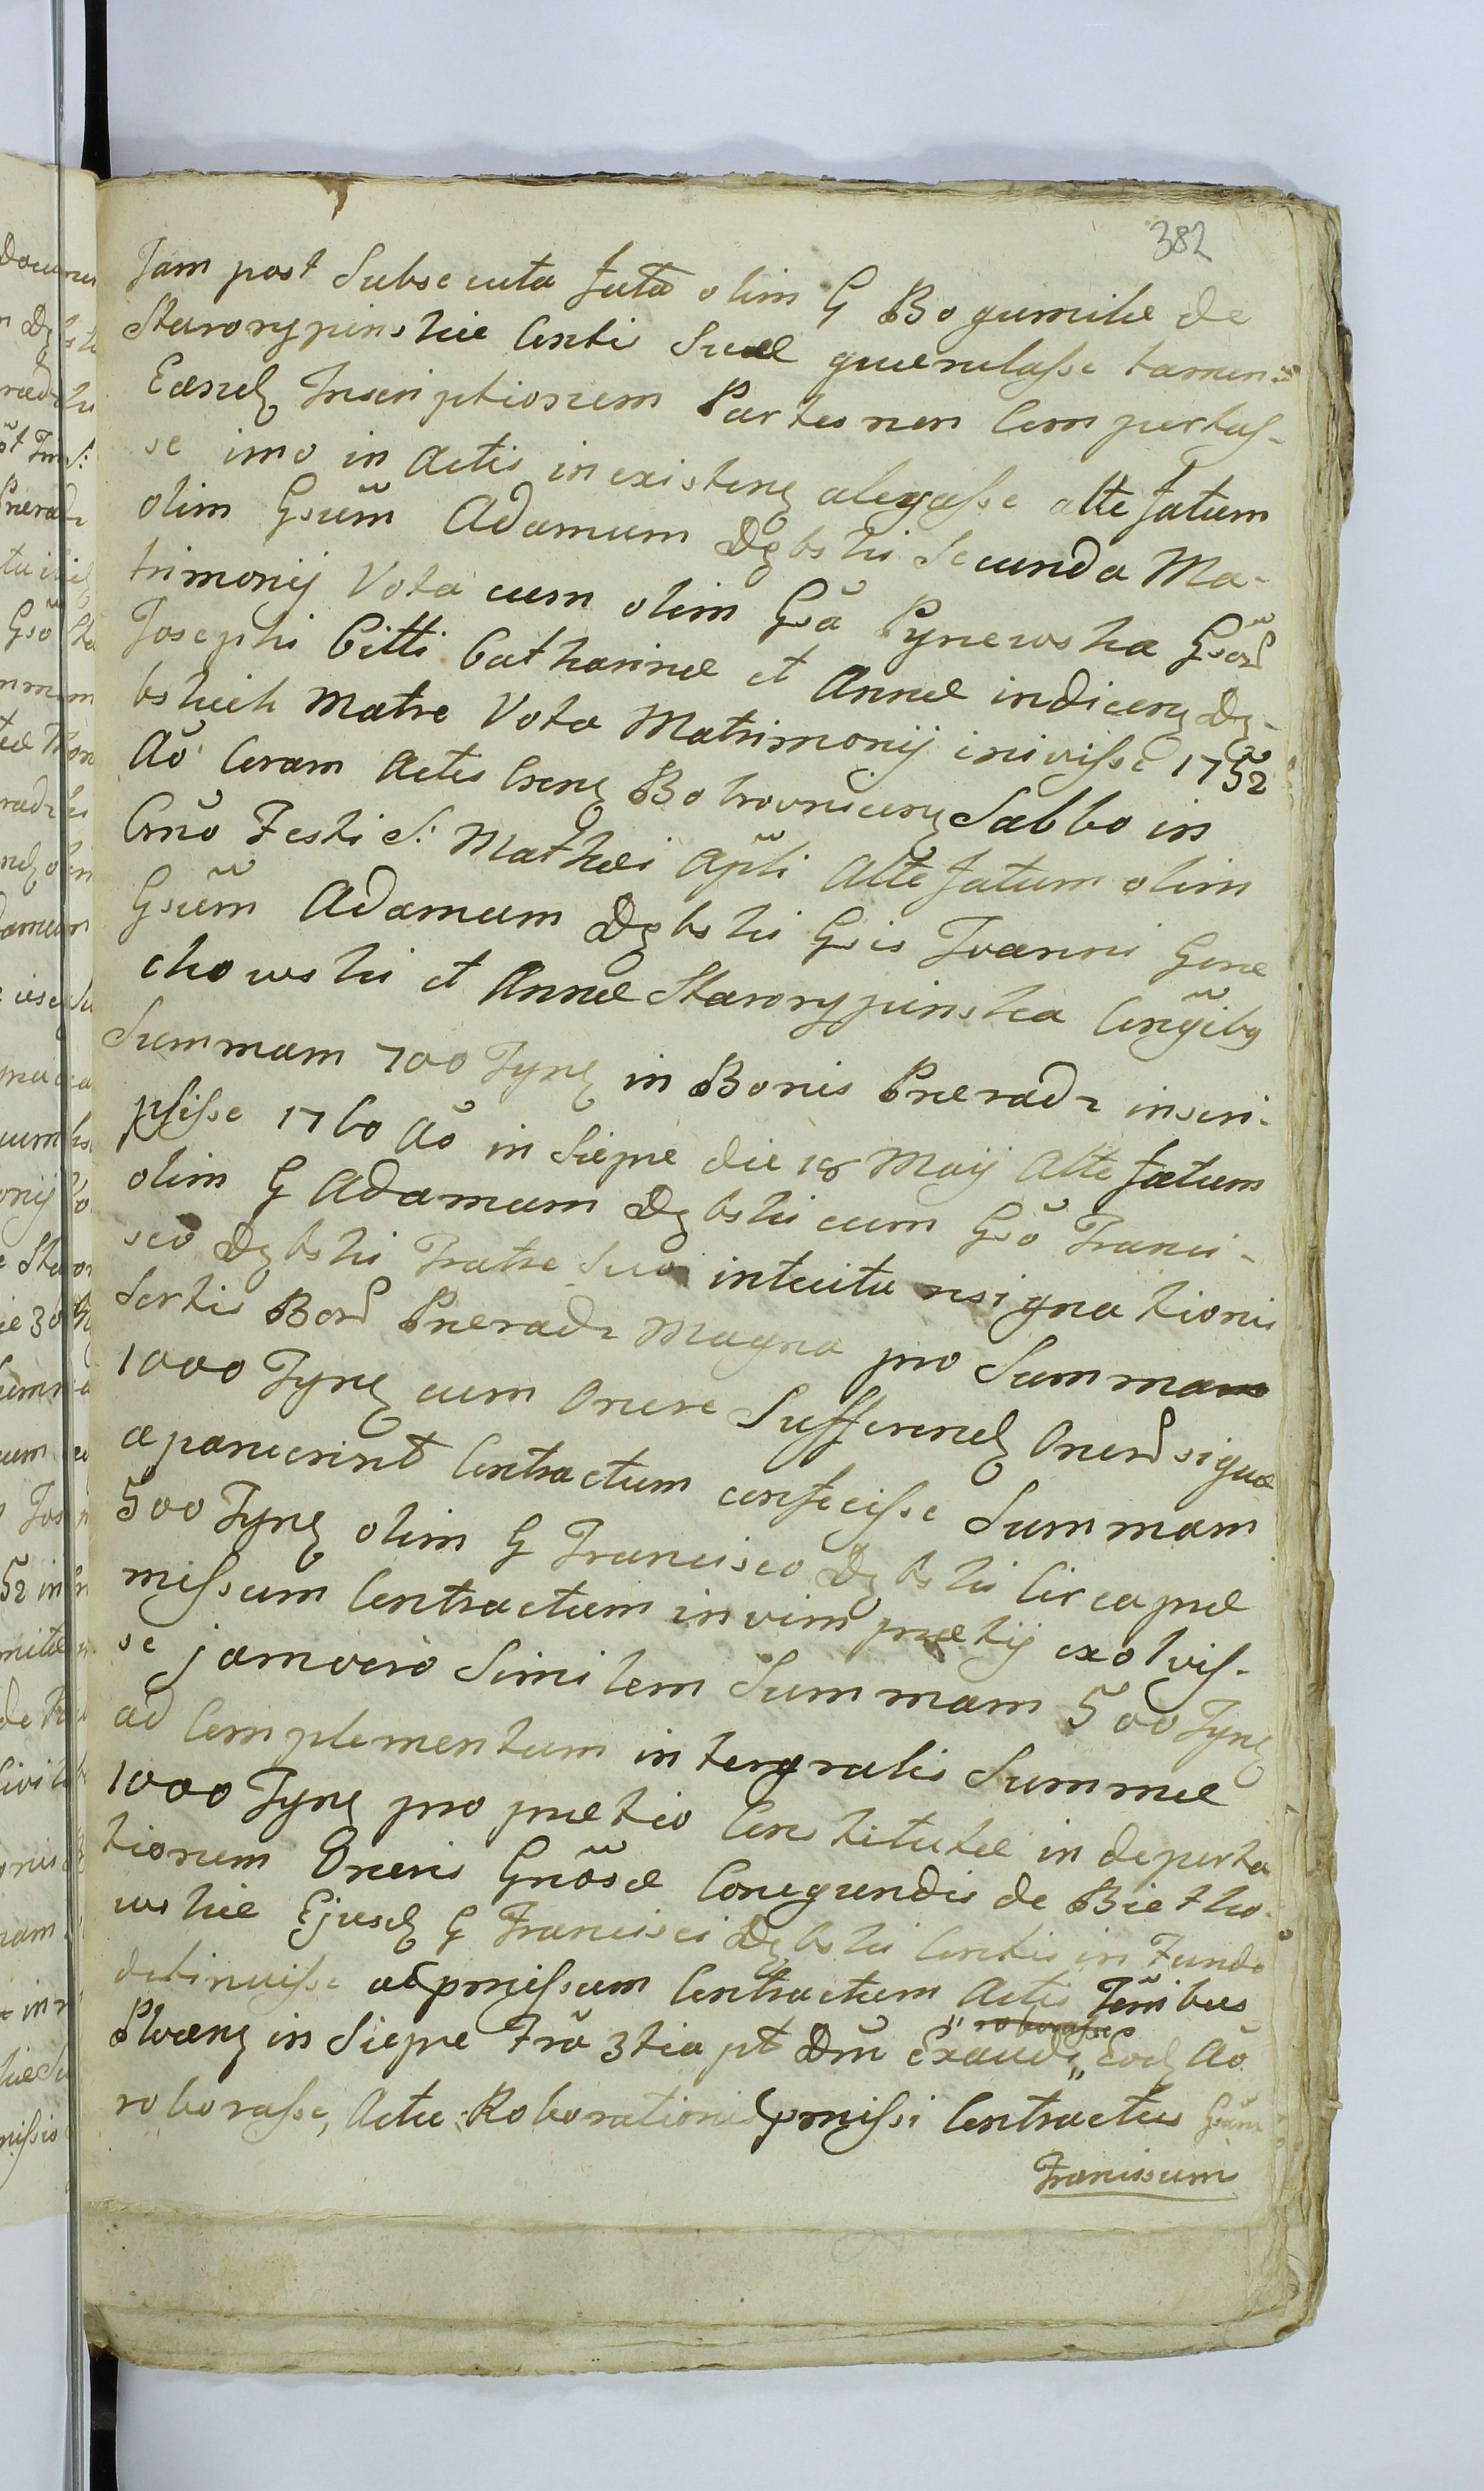 382
Jam post Subsecuta fata olim G Bogumilæ de
Starorypinskie Conti Suæ querulasse tamen
Eand Inscriptionem Partes non Comportas-
se imo in Actis inexisteng alegasse alte fatum
olim Gsum̃ Adamum Dębski Secunda Ma-
trimonij Vota cum olim Gsã Pynewska Gsor̃
Josephi Citti Catharinæ et Annæ indiceng Dę-
bskich Matre Vota Matrimonij inivisse 1752
Aõ Coram Actis Creng Bobrovniceng Sabbo in
Crño Festi S: Mathæi Apl̃i Alte fatum olim
Gsum̃ Adamum Dębski Gsis Joanni Gene
chowski et Annæ Starorypinska Conĩgibg
Summam 700 Fyng in Bonis Pneradz inscri-
psisse 1760 Aõ in Siepre die 18 Maij Alte fatum
olim G Adamum Dębski cum Gsõ Franci-
sco Dębski Fratre Suo intuitu resignationis
Sortis Bor Pneradz Magna pro Summa
1000 Fyng cum Onere Sufferend Oner siquæ
apanuerint Contractum confecisse Summam
500 Fyng olim G Francisco Dębski Circa præ
missum Contractum in vim prætij exolvis-
se jamvero Similem Summam 500 Fyng
ad Complementum intergralis Summæ
1000 Fyng pro prætio Constitutæ in deporta
tionem Oneris Gnõsæ Conegundis de Bietko-
wskie Ejusd G Francisci Dębski Contis in Fundo
detinuisse ac pmissum Contractum Actis Terr̃ibus
" roborasse
Ploceng in Siepre Frã 3tia pt Dm̃ Exaudi " Eod Aõ
roborasse, Actu Roborationis pmissi Contractus Gsum̃
Franciscum